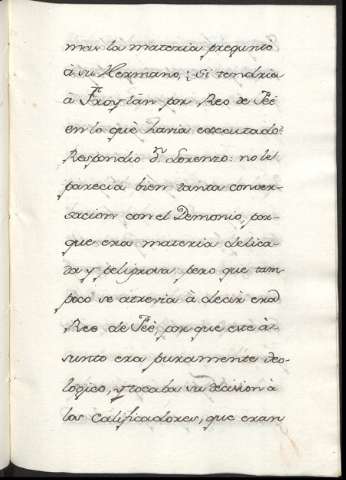 mas la materia pregunto
á su Hermano, ¿Si tendria
á Froylán por Reo de Fé
en lo que havia executado?
Respondio D.n Lorenzo: no le
parecia bien tanta conver-
sacion con el Demonio, por-
que era materia delica-
da y peligrosa, pero que tam-
poco se atrevia á decir era
Reo de Fé, por que este á-
sunto era puramente teo-
logico, y tocaba su decision á
los Calificadores, que eran